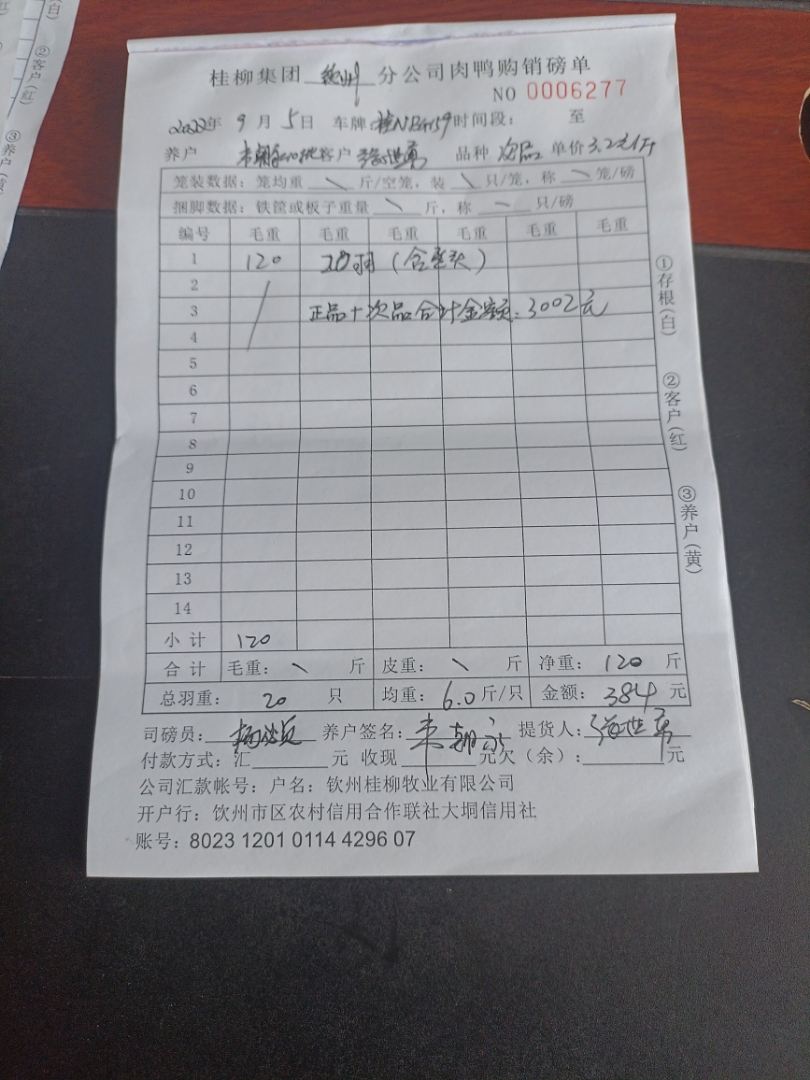 桂柳集团 钦州 分公司肉鸭购销磅单
NO 0006277
2022年 9 月 5 日 车牌 桂N 时间段： 至
养户 客户 品种 次品 单价 3.2元/斤
笼装数据：笼均重 \ 斤/空笼，装 \ 只/笼，称 \ 笼/磅
捆脚数据：铁筐或板子重量 \ 斤，称 — 只/磅
编号 毛重 毛重 毛重 毛重 毛重 毛重
1 120 20羽（含）
2
3 正品+次品合计金额：3002元
4
5
6
7
8
9
10
11
12
13
14
小计 120
合计 毛重： \ 斤 皮重： \ 斤 净重： 120 斤
总羽重： 20 只 均重： 6.0 斤/只 金额： 384 元
司磅员： 养户签名： 提货人：
付款方式：汇 元 收现 元欠（余）： 元
公司汇款帐号：户名：钦州桂柳牧业有限公司
开户行：饮州市区农村信用合作联社大垌信用社
账号：8023 1201 0114 4296 07
①存根(白)
②客户(红)
③养户(黄)
(白)
②客户(红)
③养户(黄)